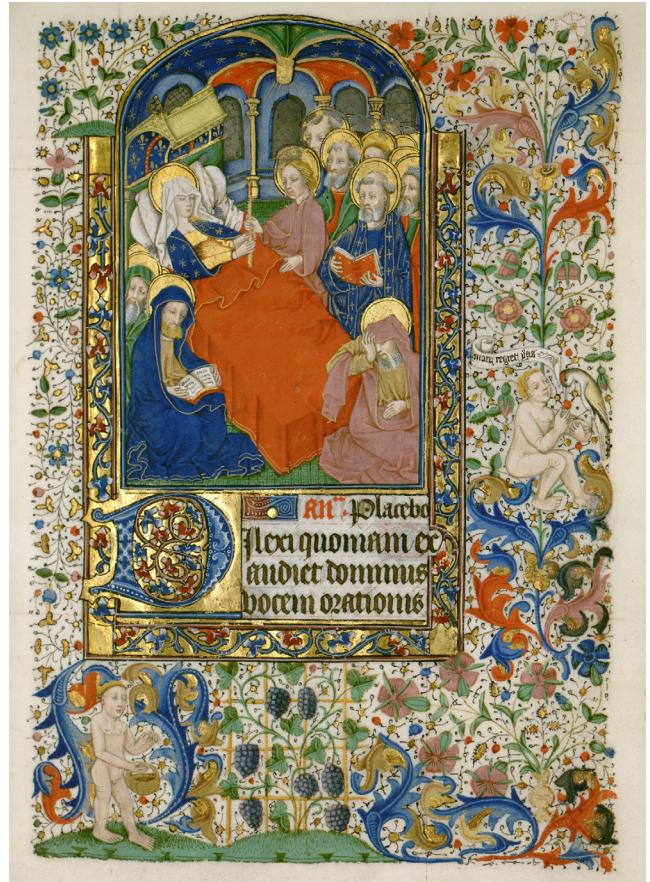 Anª. Placebo
Dilexi quoniam ex
audiet dominus
vocem orationis